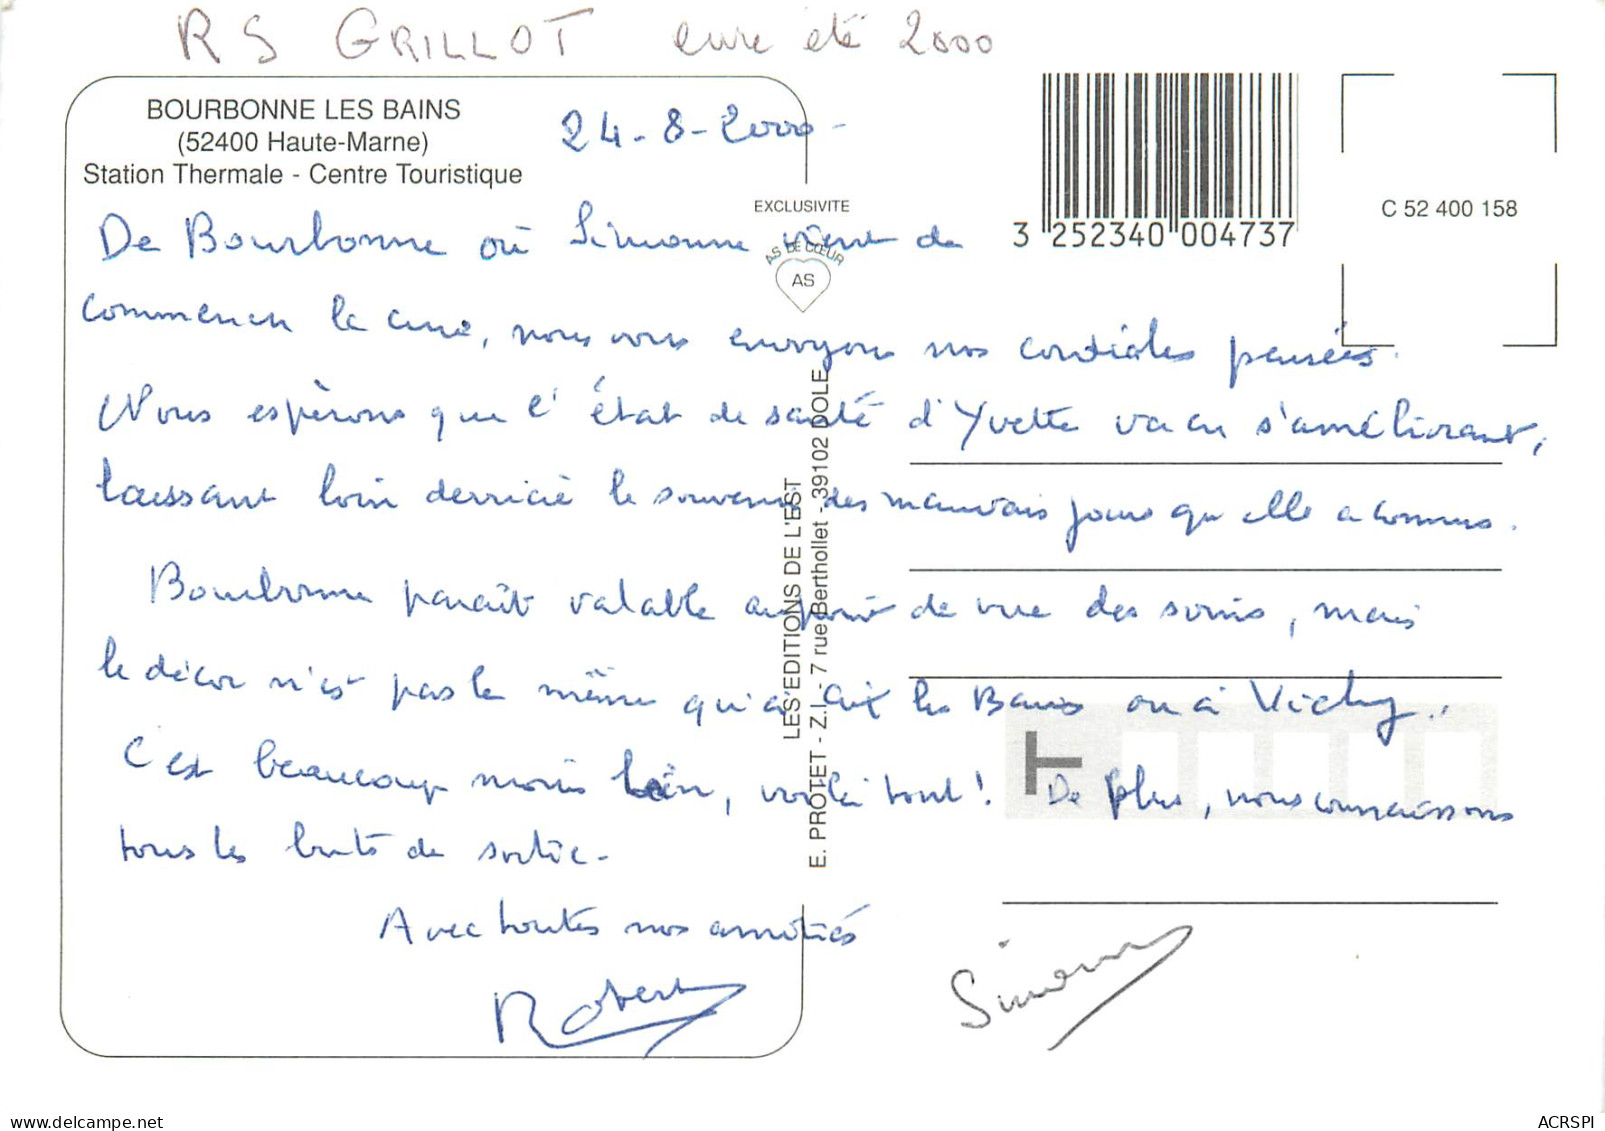 R S GRILLOT cure été 2000
BOURBONNE LES BAINS
(52400 Haute-Marne)
Station Thermale - Centre Touristique
24-8-2000-
EXCLUSIVITE
AS DE CŒUR
AS
3 252340 004737
C 52 400 158
De Bourbonne où Simonne vient de
commencer la cure, nous vous envoyons nos cordiales pensées.
Nous espérons que l'état de santé d'Yvette va en s'améliorant,
laissant loin derrière le souvenir des mauvais jours qu'elle a connus.
Bourbonne paraît valable au point de vue des soins, mais
le décor n'est pas le même qu'à Aix les Bains ou à Vichy..
C'est beaucoup moins loin, voilà tout! De plus, nous connaissons
tous les buts de sortie-
Avec toutes nos amitiés
Robert
Simonne
LES EDITIONS DE L'EST
E. PROTET - Z.I. - 7 rue Berthollet - 39102 DOLE
T
ACRSPI